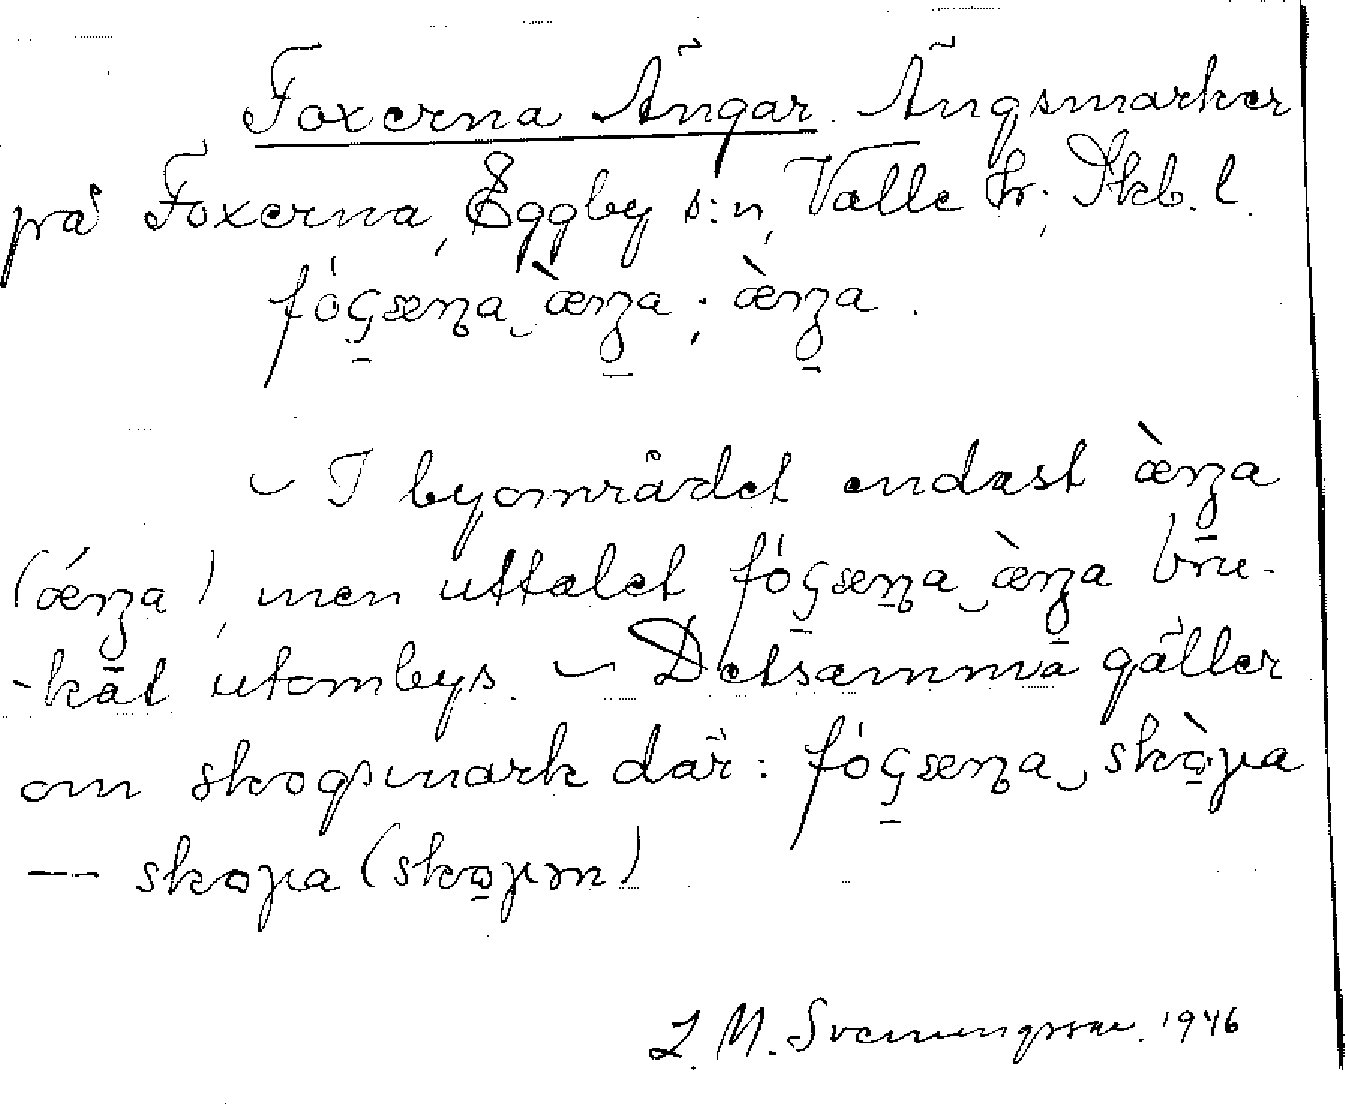 Foxerna Ängar. Ängsmarker
på Foxerna, Eggby s:n, Valle hr; Skb. l.
fóꞔsæɳa ‿ æ̀ŋa ; æ̀ŋa .
– I byområdet endast æ̀ŋa
(ǽŋa), men uttalet fóꞔsæɳa ‿ æ̀ŋa bru-
-kat utombys. – Detsamma gäller
om skogsmark där: fóꞔsæɳa ‿ skò̱ɟa
— skoɟa (sko̱ɟm)
L. M. Svenungsson. 1946